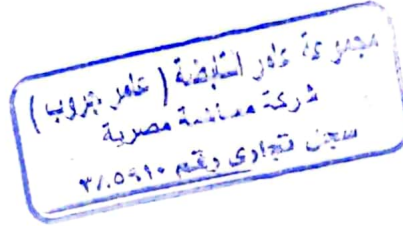 مجموعة عامر القابضة ( عامر جروب )
شركة مساهمة مصرية
سجل تجاري رقم ٣/٠٥٩١٠